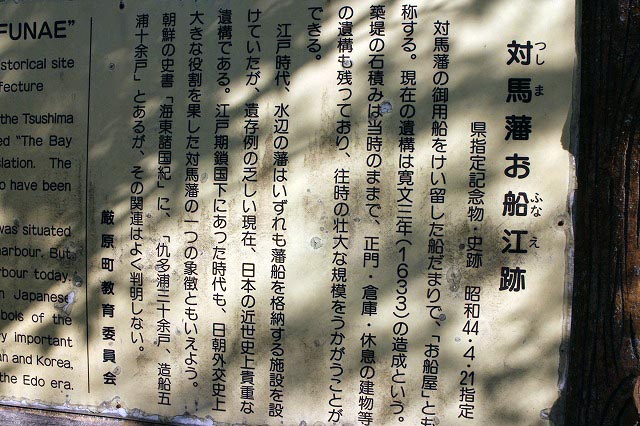 対馬藩お船江跡
つしま
ふなえ
県指定記念物・史跡　昭和44・4・21指定
対馬藩の御用船をけい留した船だまりで、「お船屋」とも
称する。現在の遺構は寛文三年(1633)の造成という。
築堤の石積みは当時のままで、正門・倉庫・休息の建物等
の遺構も残っており、往時の壮大な規模をうかがうことが
できる。
江戸時代、水辺の藩はいずれも藩船を格納する施設を設
けていたが、遺存例の乏しい現在、日本の近世史上貴重な
遺構である。江戸期鎖国下にあった時代も、日朝外交史上
大きな役割を果した対馬藩の一つの象徴ともいえよう。
朝鮮の史書「海東諸国紀」に、「仇多浦三十余戸、造船五
浦十余戸」とあるが、その関連はよく判明しない。
厳原町教育委員会
FUNAE"
storical site
fecture
the Tsushima
ed "The Bay
slation. The
o have been
was situated
harbour. But
rbour today.
n Japanese
bols of the
ry important
n and Korea,
the Edo era.